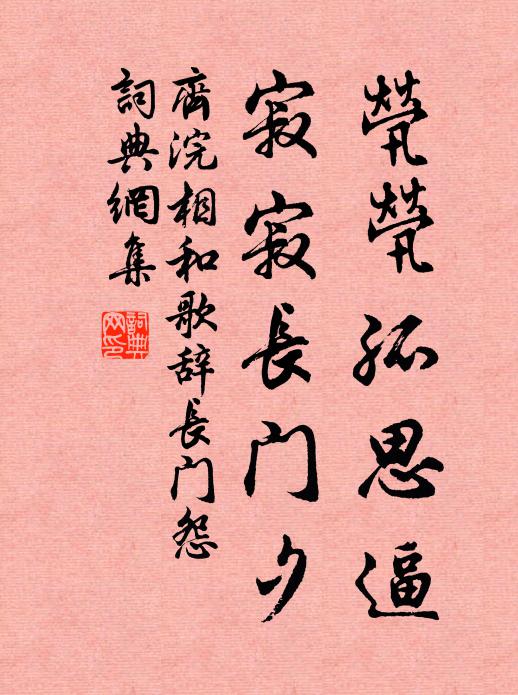 茕茕孤思逼
寂寂長门夕
齊浣相和歌辞長门怨
詞典網集
詞典网印